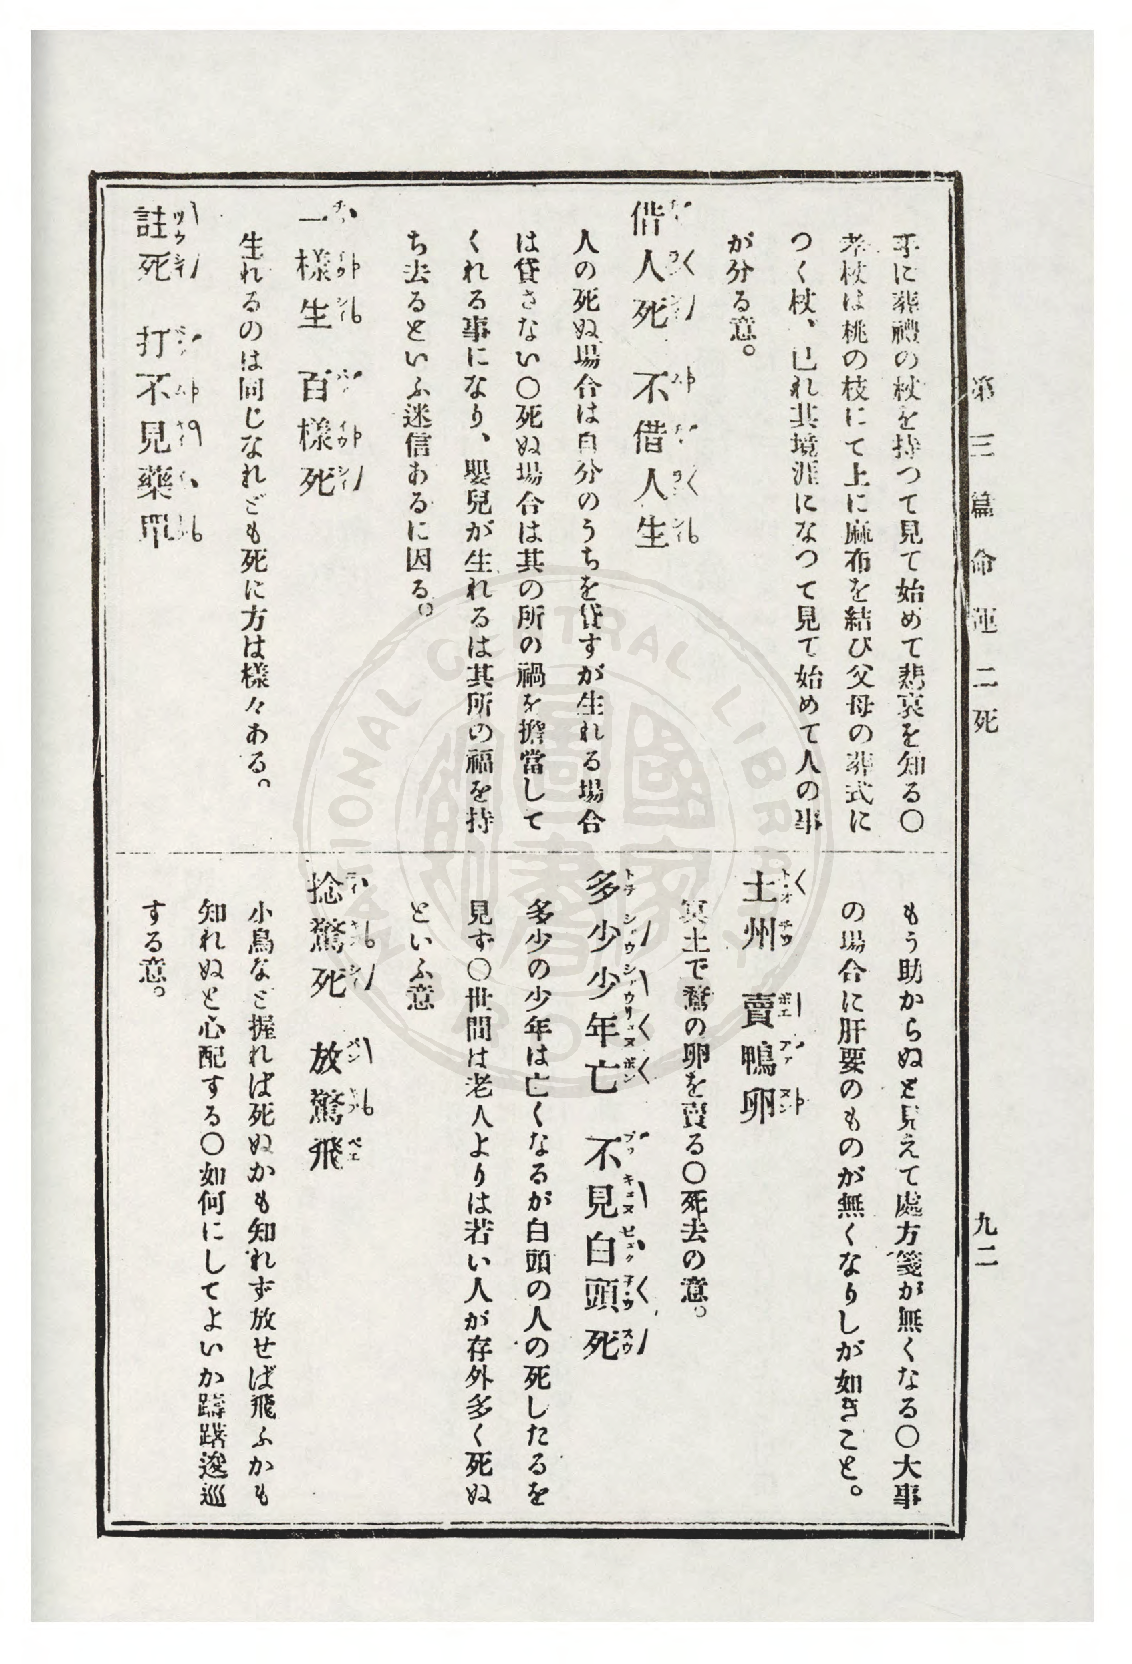 第三篇 命運 二 死
九二
手に葬禮の杖を持つて見て始めて悲哀を知る〇
孝杖は桃の枝にて上に麻布を結び父母の葬式に
つく杖、已れ其境涯になつて見て始めて人の事
が分る意。
借人死 不借人生
人の死ぬ場合は自分のうちを貸すが生れる場合
は貸さない〇死ぬ場合は其の所の禍を擔當して
くれる事になり、嬰兒が生れるは其所の福を持
ち去るといふ迷信あるに因る。
一樣生 百樣死
生れるのは同じなれども死に方は樣々ある。
註死 打不見藥單
もう助からぬと見えて處方箋が無くなる〇大事
の場合に肝要のものが無くなりしが如きこと。
土州 賣鴨卵
冥土で鶩の卵を賣る〇死去の意。
多少少年亡 不見白頭死
多少の少年は亡くなるが白頭の人の死したるを
見ず〇世間は老人よりは若い人が存外多く死ぬ
といふ意
捻驚死 放驚飛
小鳥など握れば死ぬかも知れず放せば飛ふかも
知れぬと心配する〇如何にしてよいか躊躇逡巡
する意。
NATIONAL CENTRAL LIBRARY